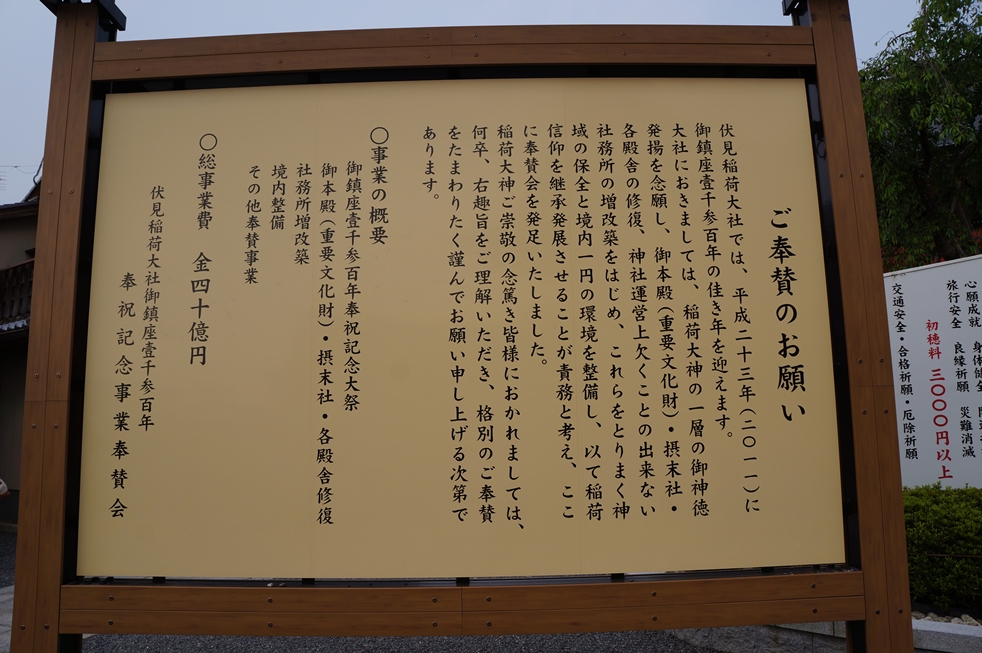 ご奉賛のお願い
伏見稲荷大社では、平成二十三年（二〇一一）に
御鎮座壹千参百年の佳き年を迎えます。
大社におきましては、稲荷大神の一層の御神徳
発揚を念願し、御本殿（重要文化財）・摂末社・
各殿舎の修復、神社運営上欠くことの出来ない
社務所の増改築をはじめ、これらをとりまく神
域の保全と境内一円の環境を整備し、以て稲荷
信仰を継承発展させることが責務と考え、ここ
に奉賛会を発足いたしました。
稲荷大神ご崇敬の念篤き皆様におかれましては、
何卒、右趣旨をご理解いただき、格別のご奉賛
をたまわりたく謹んでお願い申し上げる次第で
あります。
〇事業の概要
御鎮座壹千参百年奉祝記念大祭
御本殿（重要文化財）・摂末社・各殿舎修復
社務所増改築
境内整備
その他奉賛事業
〇総事業費　金四十億円
伏見稲荷大社御鎮座壹千参百年
奉祝記念事業奉賛会
心願成就　身体健全
旅行安全　良縁祈願　災難消滅
初穂料　三〇〇〇円以上
交通安全・合格祈願・厄除祈願